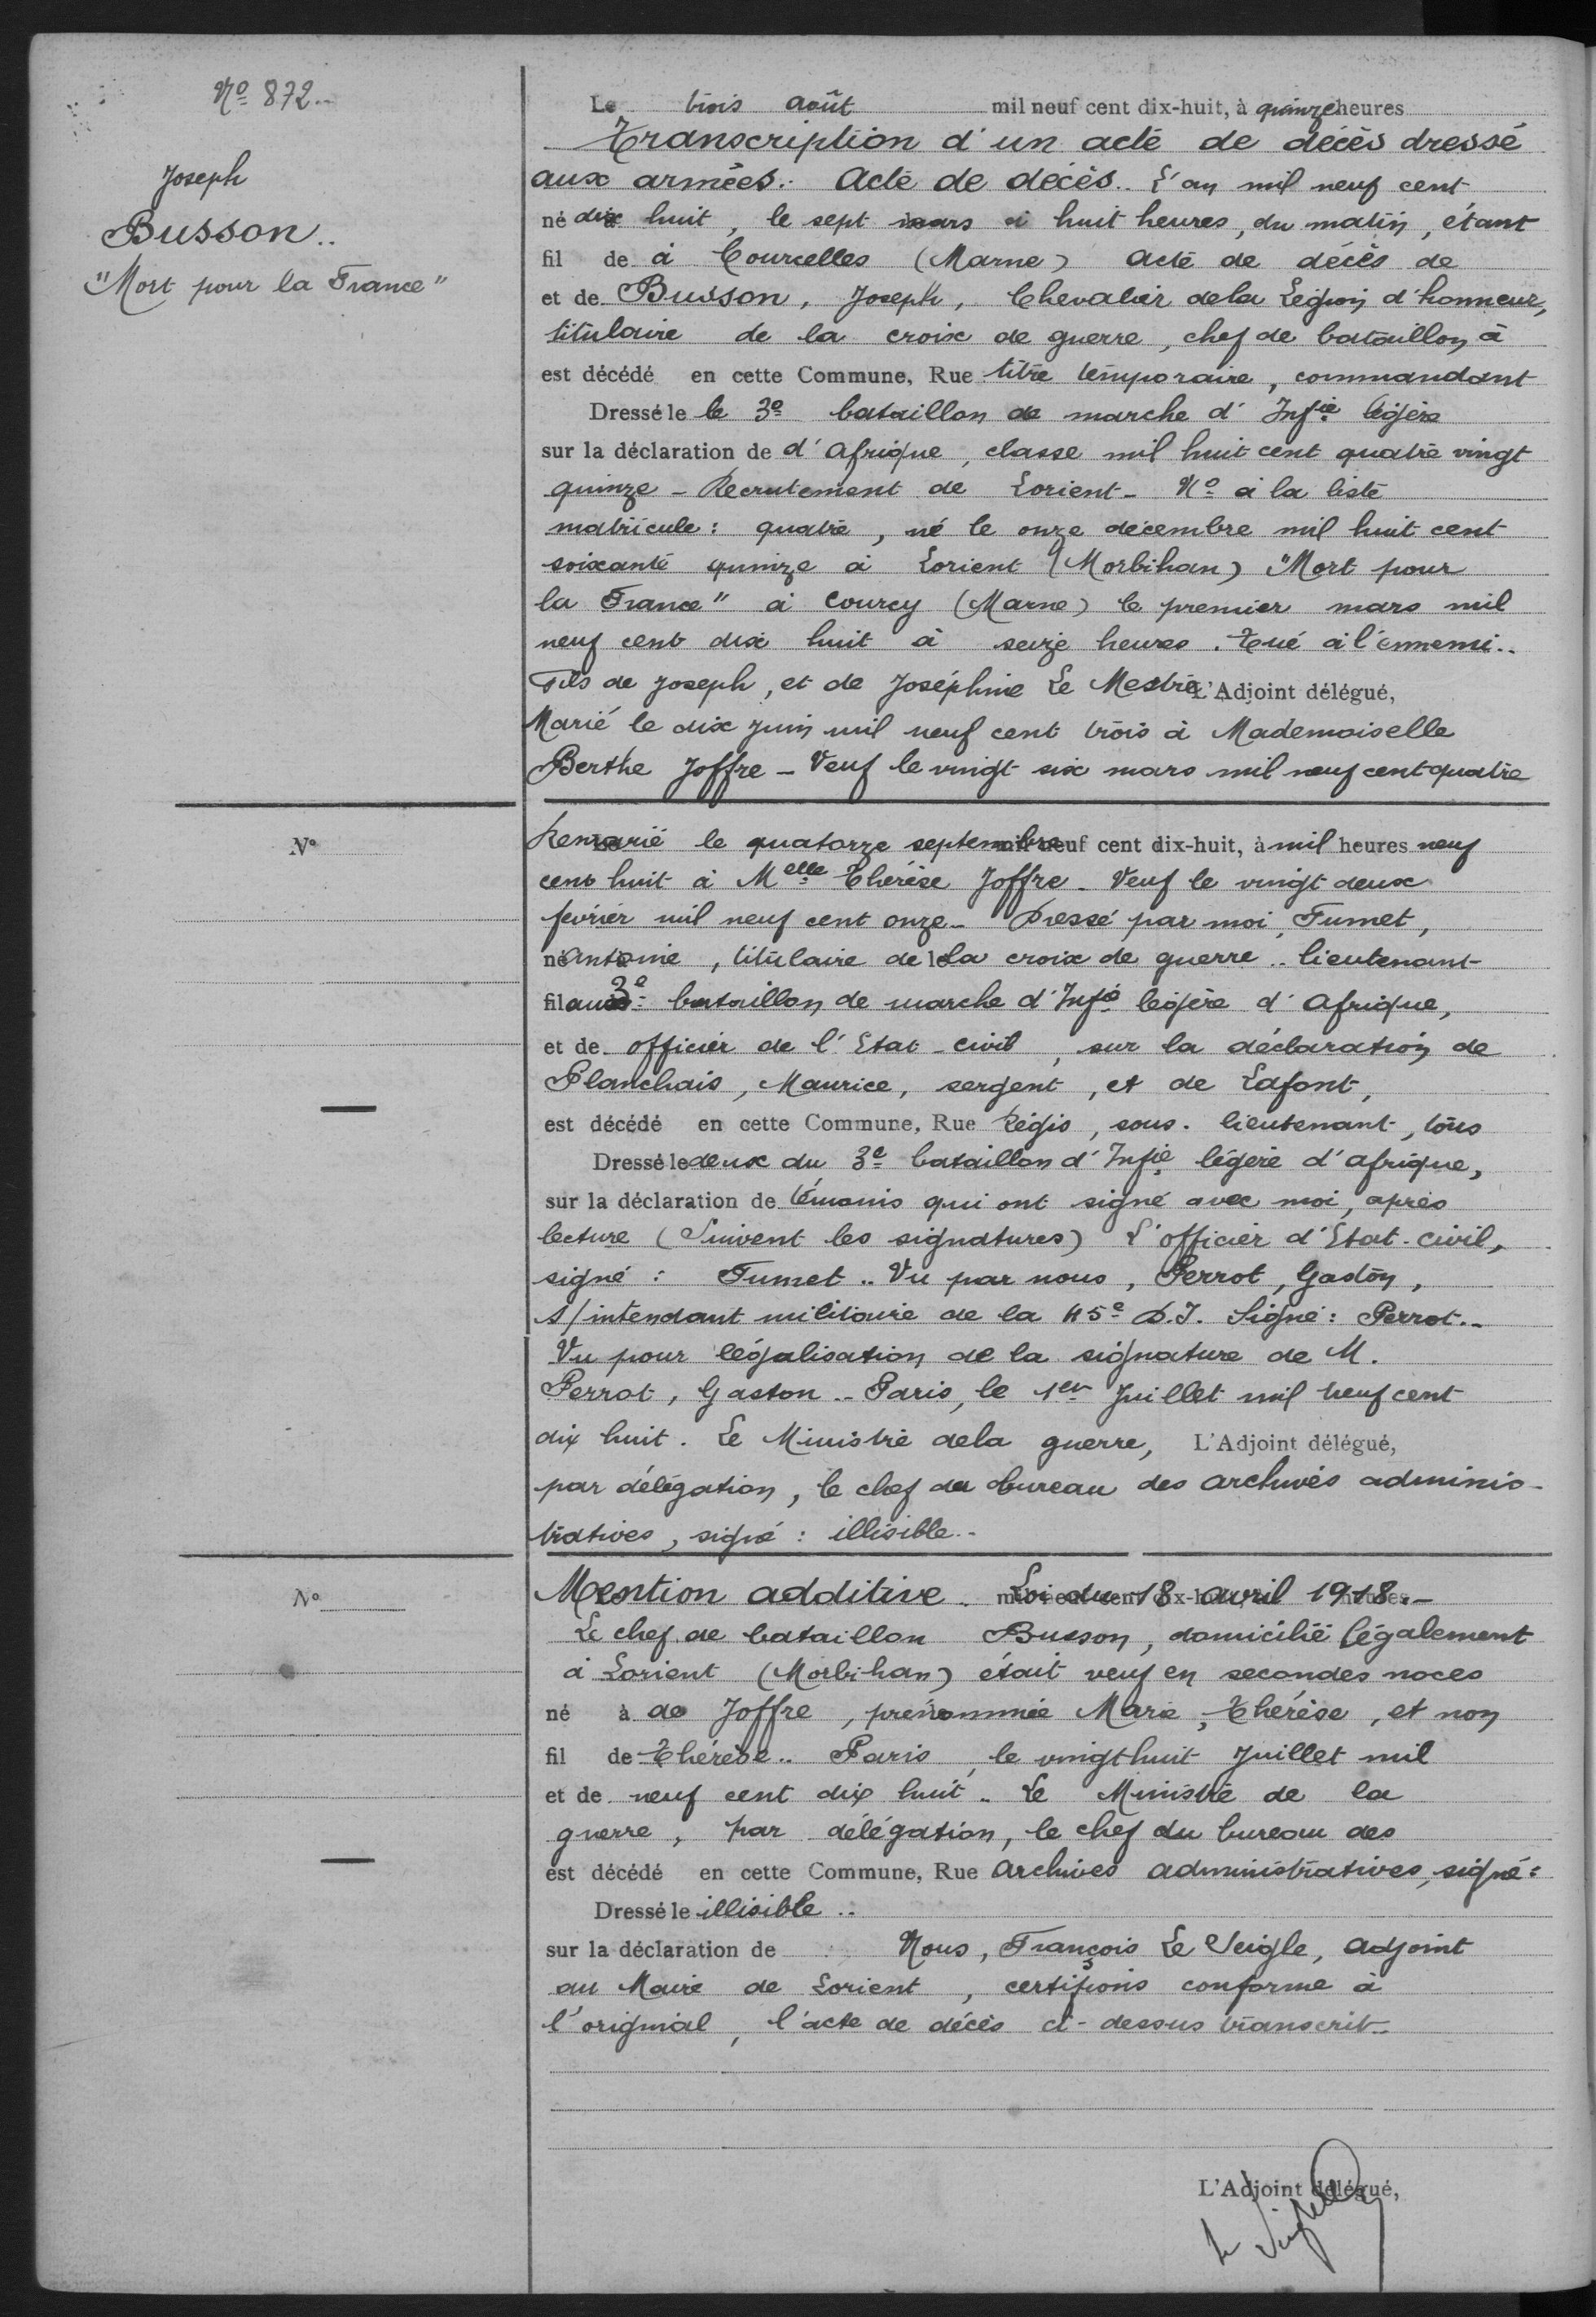 Nº 872..
Joseph
Busson..
"Mort pour la France"
Le trois août mil neuf cent dix-huit, à quinze heures
Transcription d'un acte de décès dressé
aux armées. Acte de décès.. L'an mil neuf cent
né à dix huit, le sept mars à huit heures, du matin, étant
fil de à Courcelles (Marne) acte de décès de
et de Busson, Joseph, Chevalier de la Légion d'honneur,
titulaire de la croix de guerre, chef de bataillon à
est décédé en cette Commune, Rue titre temporaire, commandant
Dressé le le 3e bataillon de marche d'Infie légère
sur la déclaration de d'Afrique, classe mil huit cent quatre vingt
quinze - Recrutement de Lorient - Nº à la liste
matricule : quatre, né le onze décembre mil huit cent
soixante quinze à Lorient (Morbihan) "Mort pour
la France" à Courcy (Marne) le premier mars mil
neuf cent dix huit à seize heures. Tué à l'ennemi..
Fils de Joseph, et de Joséphine Le Mestre L'Adjoint délégué,
Marié le dix juin mil neuf cent trois à Mademoiselle
Berthe Joffre - Veuf le vingt six mars mil neuf cent quatre
Nº
Remarié le quatorze septembre mil neuf cent dix-huit, à mil heures neuf
cent huit à Melle Thérèse Joffre - Veuf le vingt deux
février mil neuf cent onze - Dressé par moi, Fumet,
né Antoine, titulaire de la croix de guerre.. lieutenant
fil au 3e bataillon de marche d'Infie légère d'Afrique,
et de officier de l'Etat-civil, sur la déclaration de
Planchais, Maurice, sergent, et de Lafont,
est décédé en cette Commune, Rue Régis, sous-lieutenant, tous
Dressé le deux du 3e bataillon d'Infie légère d'afrique,
sur la déclaration de témoins qui ont signé avec moi, après
lecture (Suivent les signatures) L'officier d'Etat-civil,
signé : Fumet.. Vu par nous, Perrot, Gaston,
s/intendant militaire de la 45e D.I. Signé : Perrot..
Vu pour légalisation de la signature de M.
Perrot, Gaston.. Paris, le 1er Juillet mil neuf cent
dix huit. Le Ministre de la guerre, L'Adjoint délégué,
par délégation, le chef du bureau des archives adminis-
tratives, signé : illisible..
Nº
Mention additive. Loi du 18 avril 1918.-
Le chef de bataillon Busson, domicilié légalement
à Lorient (Morbihan) était veuf en secondes noces
né à de Joffre, prénommée Marie, Thérèse, et non
fil de Thérèse.. Paris, le vingt huit Juillet mil
et de neuf cent dix huit.. Le Ministre de la
guerre, par délégation, le chef du bureau des
est décédé en cette Commune, Rue Archives administratives, signé :
Dressé le illisible..
sur la déclaration de Nous, François Le Veigle, adjoint
au Maire de Lorient, certifions conforme à
l'original, l'acte de décès ci-dessus transcrit..
L'Adjoint délégué,